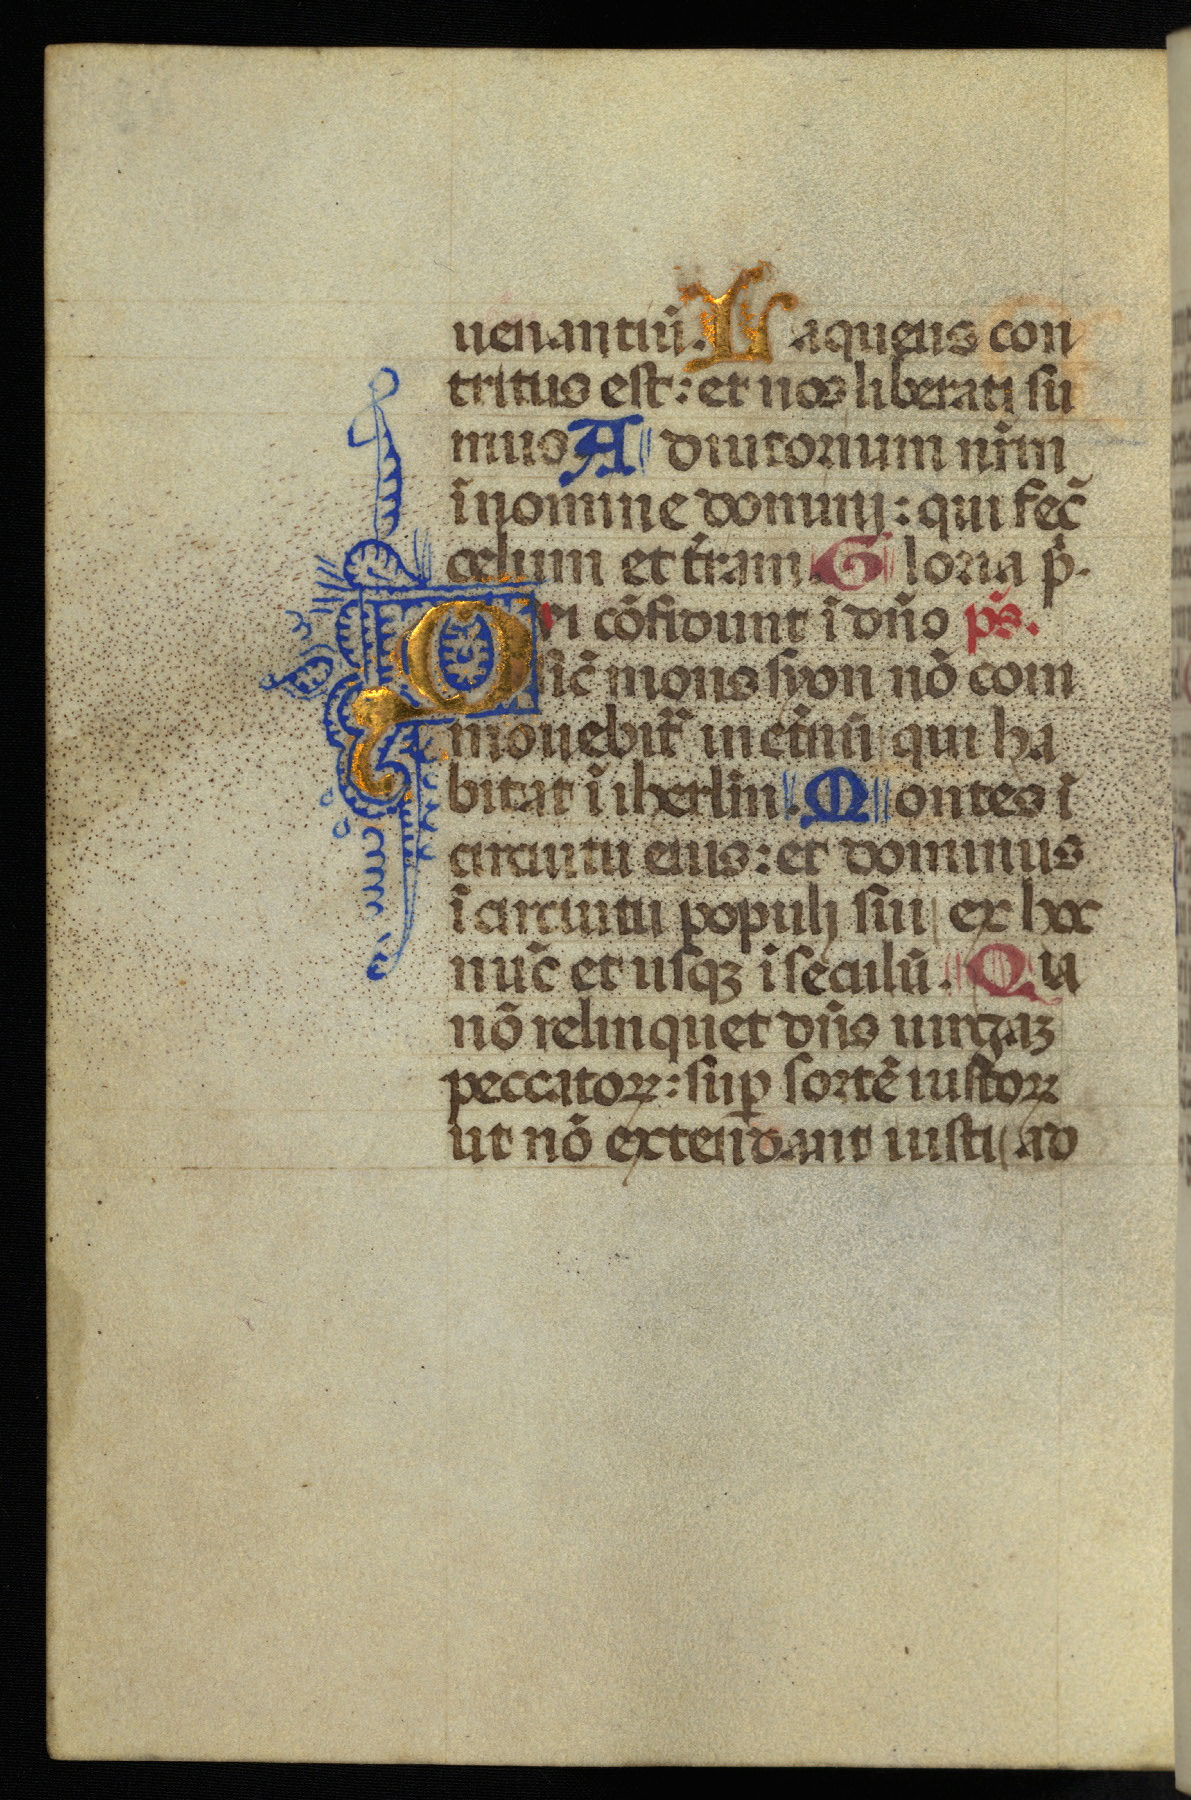 uenantiũ. Laqueus con
tritus est: et nos liberati su
mus. Adiutorium nr̃m
ĩ nomine dominj: qui fec̃
celum et tr̃am. Gloria p̃.
Qui cõfidunt ĩ dño ps̃.
sic̃ mons syon nõ com
mouebit᷑ in et̃nũ qui ha
bitat ĩ iherl̃m. Montes ĩ
circuitu eius: et dominus
ĩ circuitu populj sui ex hoc
nũc et usqꝫ ĩ seculũ. Qu
nõ relinquet dñs uirgaꝫ
peccatoꝝ: suꝑ sortẽ iustoꝝ
ut nõ extendant iusti ad